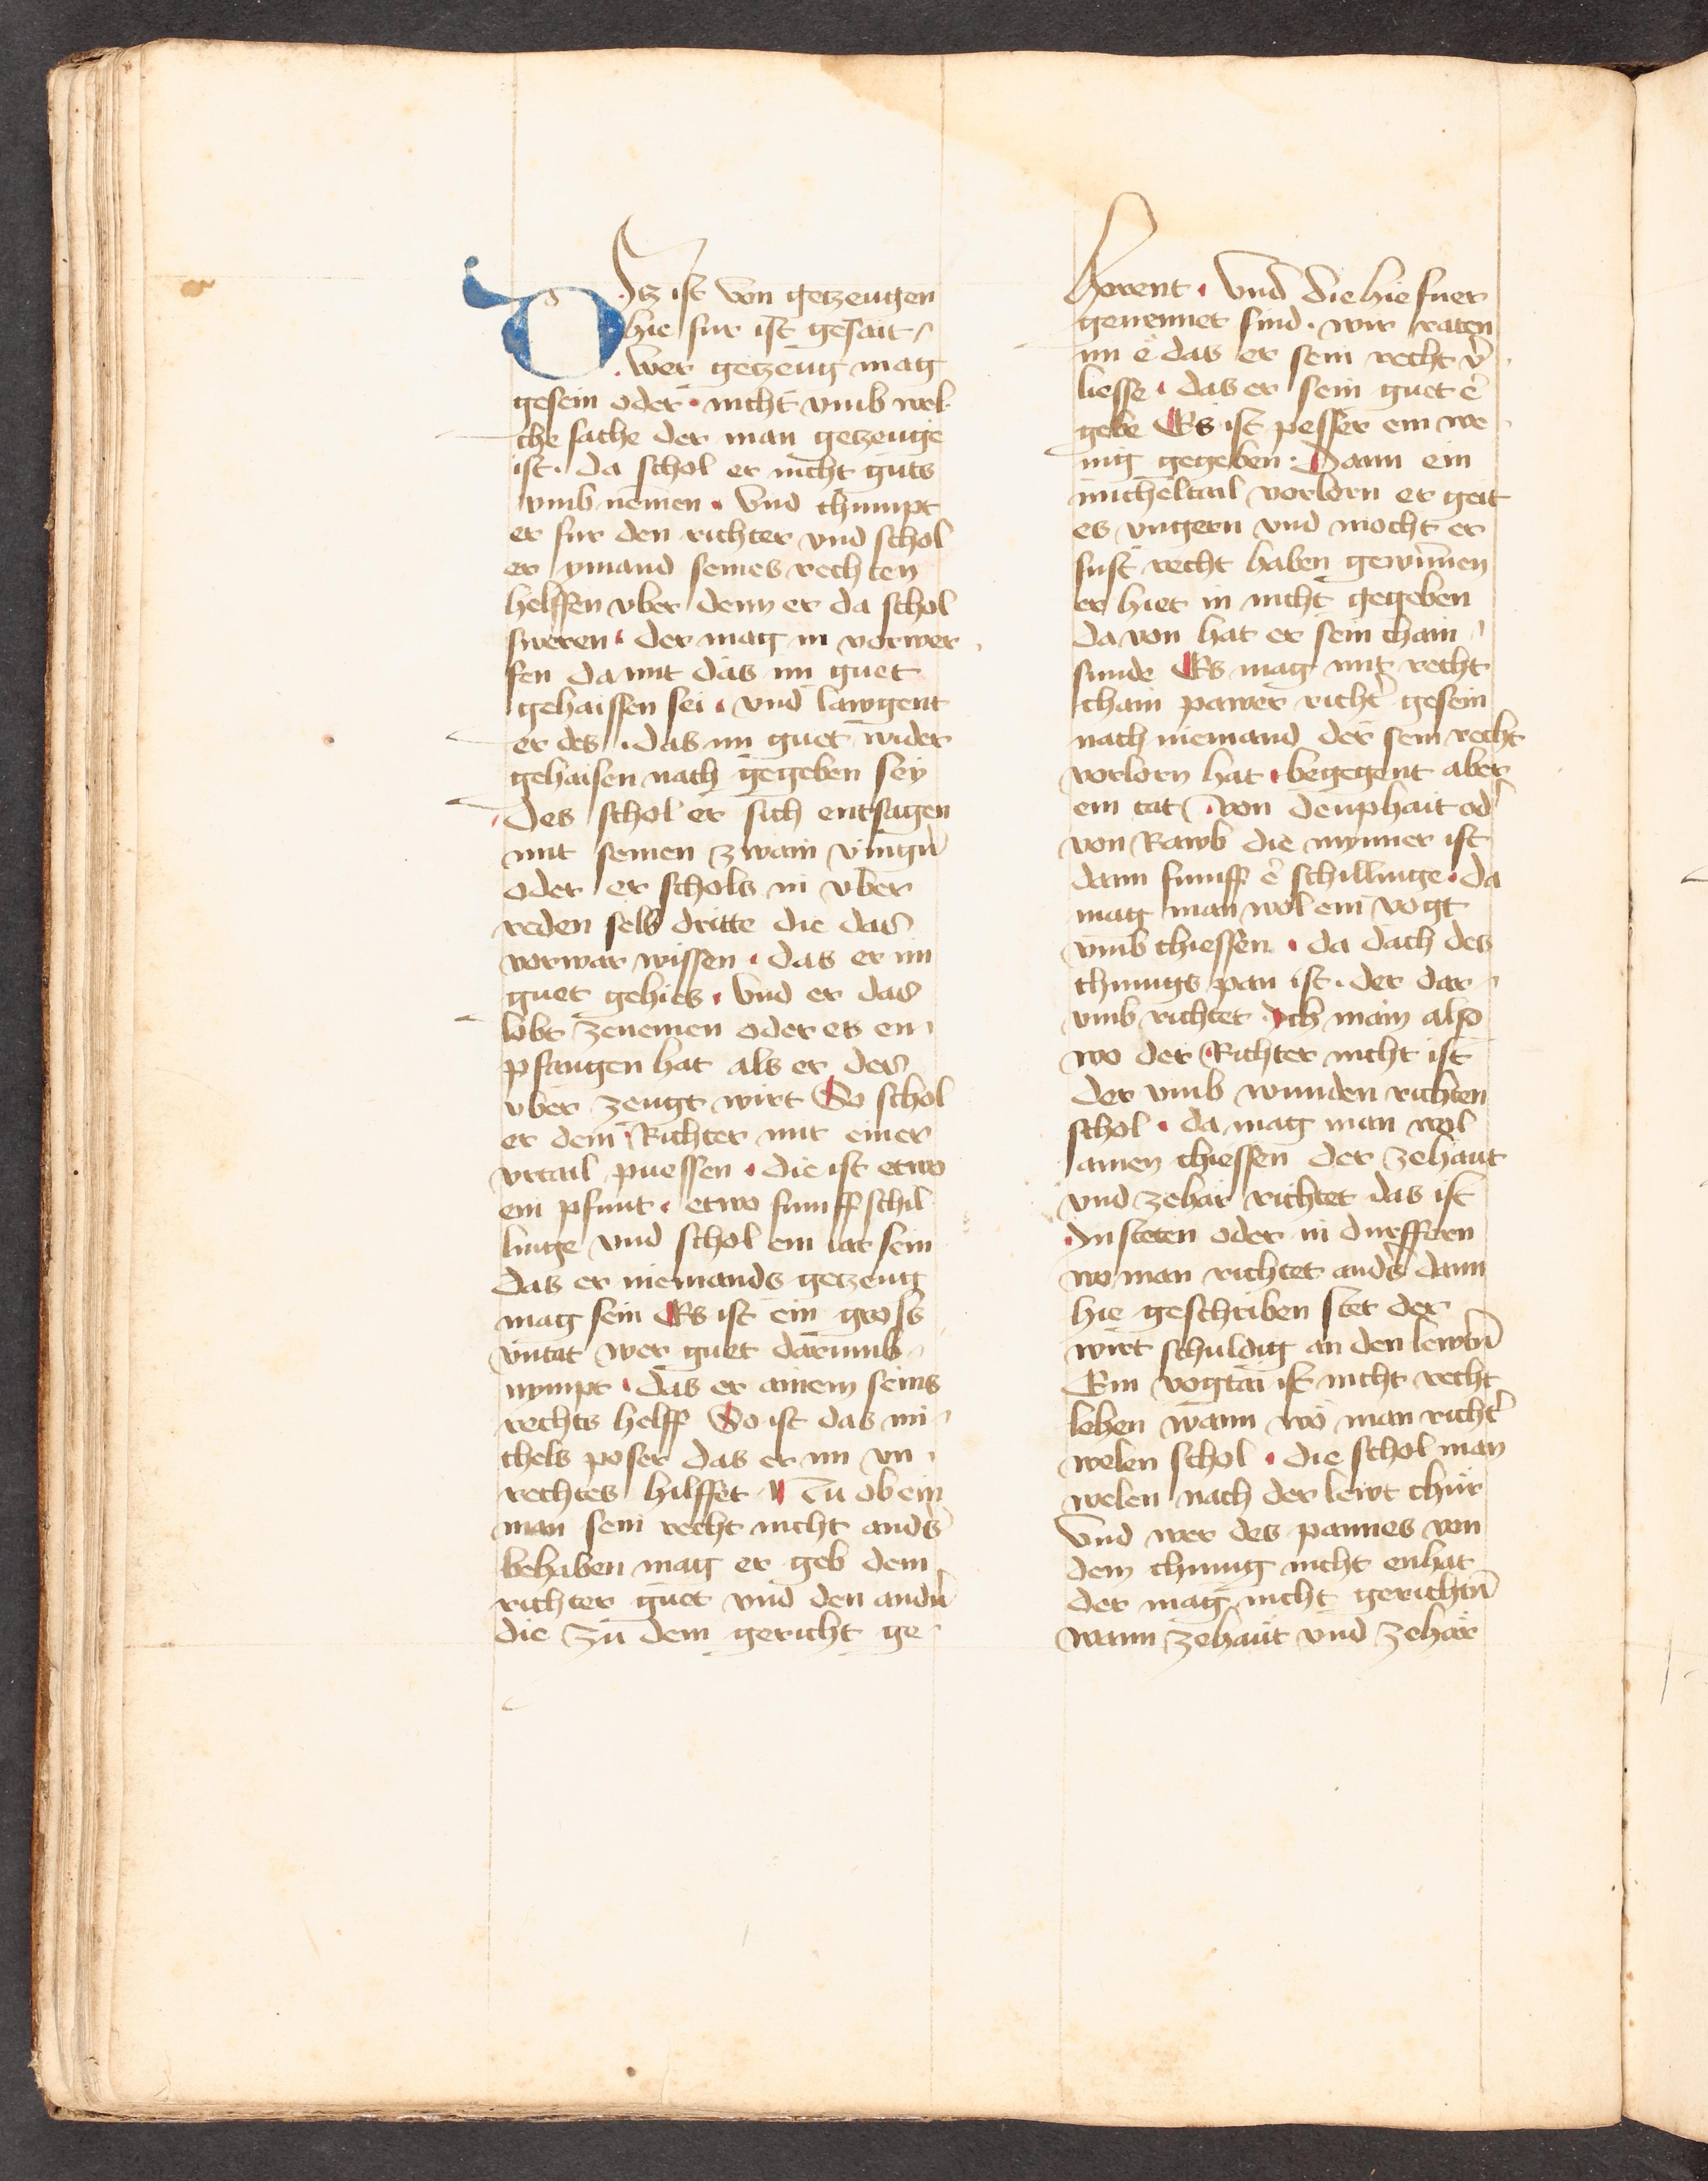 DItz ist von getzeugen
hie fur ist gesait
wer getzeug mag
gesein oder nicht vmb wel
che sache der man getzeuge
ist. da schol er nicht guts
vmb nemen. vnd chumpt
er fur den richter vnd schol
er ymand seines rechten
helffen vber denn er da schol
sweren. der mag in vorwer
fen da mit das im guet
gehaissen sei. vnd lawgent
er des. das im guet wider
gehaisen nach gegeben sey
Des schol er sich entsagen
mit seinen zwain vingern̄
oder er schols in vber
reden selb dritte die das
vorwar wissen. das er im
guet gehies. vnd er das
lobt zenemen oder es en
pfangen hat als er des
vber zeugt wirt So schol
er dem Richter mit einer
vrtail puessen. die ist etwo
ein pfunt. etwo fumff schil
linge vnd schol ein iar sein
das er niemands getzeug
mag sein Es ist ein gross
vntat wer guet darumb
nympt. das er ainem seins
rechts helff So ist das mi
chels poser das er im vn
rechtes hilffet Tu ob ein
man sein recht nicht anders̄
behaben mag er geb dem
richter guet vnd den andn̄
die zu dem gericht ge
horent. vnd die hie fuer
genennet sind. wir raten
im e das er sein recht v̄
liesse. das er sein guet e
gebe Es ist pesser ein we
nig gegeben. Dann ein
micheltail vorlorn er geit
es vngern vnd mocht er
sust recht haben gewunnen
er hiet in nicht gegeben
da von hat er sein chain
sunde Es mag mit recht
chain pawer richt̄ gesein
nach niemand der sein recht
vorlorn hat. begegent aber
ein tat. von deuphait od̄
von Rawb die mynner ist
dann fumff e schillinge. da
mag man wol ein vogt
vmb chiessen. da dach des
chunigs pan ist. der dar
vmb richtet Ich main also
wo der Richter nicht ist
der vmb wunden richten
schol. da mag man wol
ainen chiessen der zehaut
vnd zehar richtet das ist
In steten oder in durffern
wo man richtet and̄s dann
hie geschriben stet der
wirt schuldig an den lewtn̄
Ein vogtai ist nicht recht
lehen wann wo man richt̄
welen schol. die schol man
welen nach der lewt chur
Vnd wer des pannes von
dem chunig nicht enhat
der mag nicht gerichtn̄
wann zehaut vnd zehar